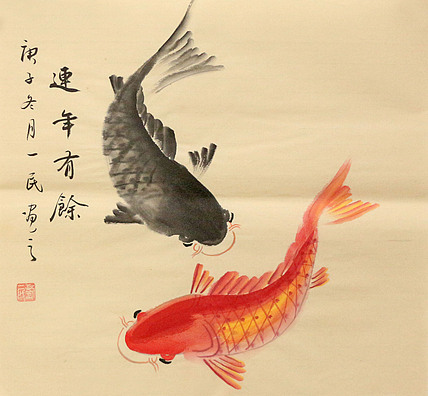 連年有餘
庚子冬月一民画之